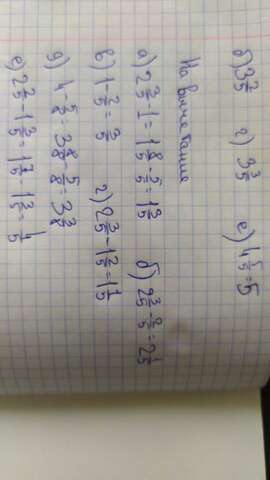 б) 3 2/5 г) 3 3/5 е) 4 5/5 = 5
На вычетание
а) 2 3/5 - 1 = 1 8/5 - 2/5 = 1 3/5 б) 2 3/5 - 2/5 = 2 1/5
в) 1 - 2/5 = 3/5 г) 2 3/5 - 1 2/5 = 1 1/5
д) 4 - 5/8 = 3 8/8 - 5/8 = 3 3/8
е) 2 2/5 - 1 3/5 = 1 7/5 - 1 3/5 = 4/5